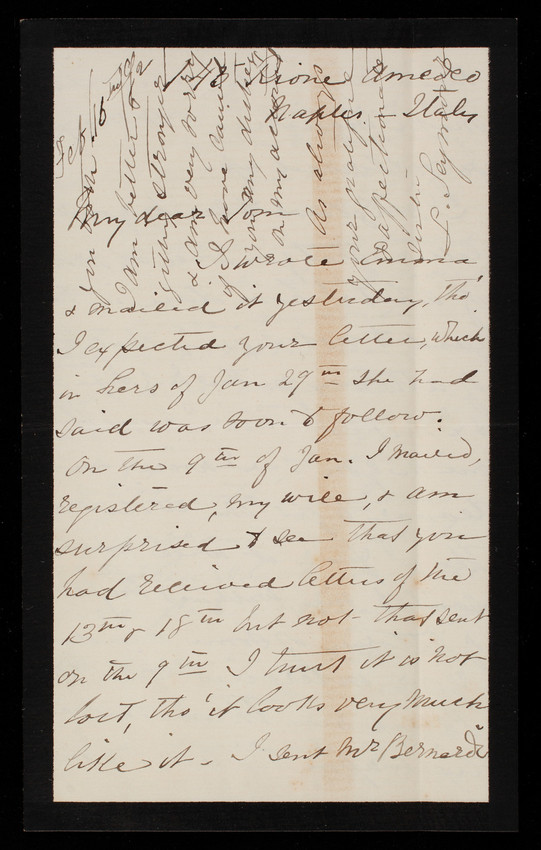 148 Rione Amedeo
Naples - Italy
My dear Tom
I wrote Emma
& mailed it yesterday, tho'
I expected your letter, which
in hers of Jan 29th she had
said was soon to follow.
On the 9th of Jan. I mailed,
registered, my will, & am
surprised to see that you
had received letters of the
13th & 18th but not that sent
on the 9th I trust it is not
lost, tho' it looks very much
like it - I sent Mr Bernard's
I am better &
stronger
& am very sorry
to have
you any
on my account
As always
your
& affectionate
L. Seymour